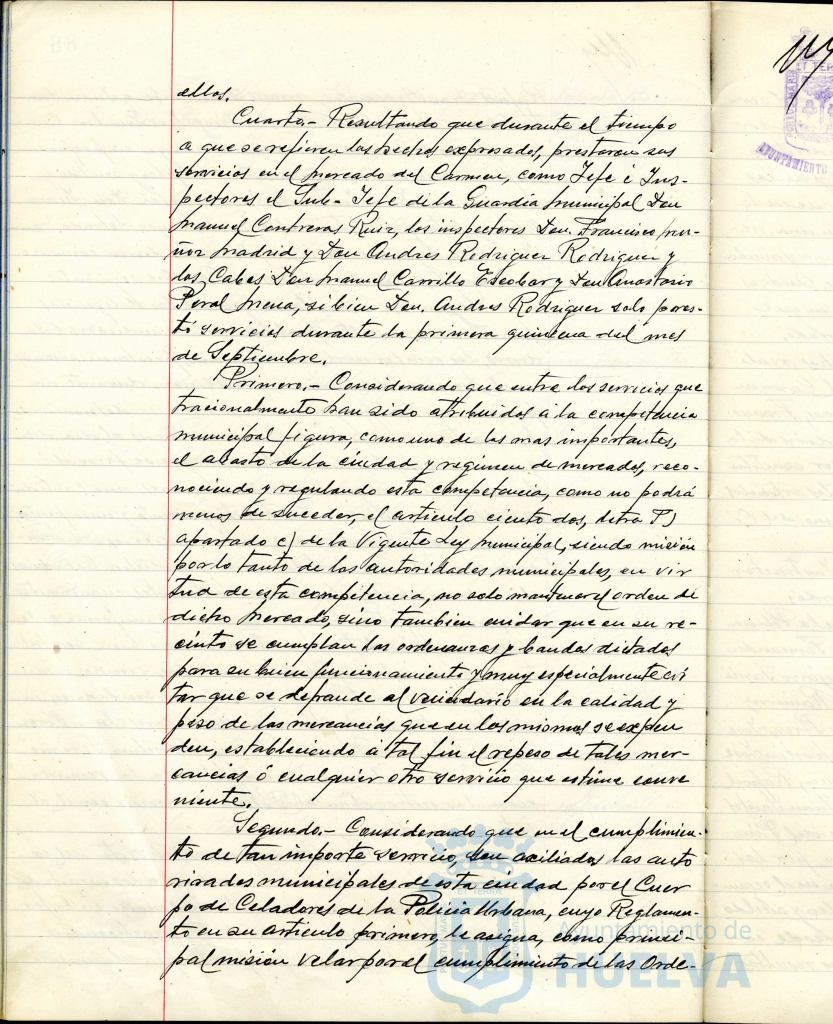 ellos.
Cuarto.- Resultando que durante el tiempo
a que se refieren los hechos expresados, prestaron sus
servicios en el mercado del Carmen, como Jefe é Ins-
pectores el Sub-Jefe de la Guardia municipal Don
Manuel Contreras Ruiz, los inspectores Don. Francisco Mu-
ñoz Madrid y Don Andres Rodriguez Rodriguez y
los Cabos Don Manuel Carrillo Escobar y Don Anastasio
Peral Mena, si bien Don. Andres Rodriguez solo pres-
tó servicios durante la primera quincena del mes
de Septiembre.
Primero.- Considerando que entre los servicios que
tracionalmente han sido atribuidos á la competencia
municipal figura, como uno de los mas importantes,
el abasto de la ciudad y regimen de mercados, reco-
nociendo y regulando esta competencia, como no podrá
menos de suceder, el articulo ciento dos, letra
apartado c) de la Vigente Ley Municipal, siendo misión
por lo tanto de las autoridades municipales, en vir
tud de esta competencia, no solo mantener el orden de
dicho Mercado, sino tambien cuidar que en su re-
cinto se cumplan las ordenanzas y bandos dictados
para su buen funcionamiento y muy especialmente evi
tar que se defraude al vecindario en la calidad y
peso de las mercancias que en los mismos se expen
den, estableciendo á tal fin el repeso de tales mer-
cancias ó cualquier otro servicio que estime conve
niente.
Segundo.- Considerando que en el cumplimien-
to de tan importe servicio, son axiliados las auto
ridades municipales de esta ciudad por el Cuer
po de Celadores de la Policia Urbana, cuyo Reglamen-
to en su articulo primero, le asigna, como princi-
pal misión velar por el cumplimiento de las Orde-
Ayuntamiento de
HUELVA
AYUNTAMIENTO